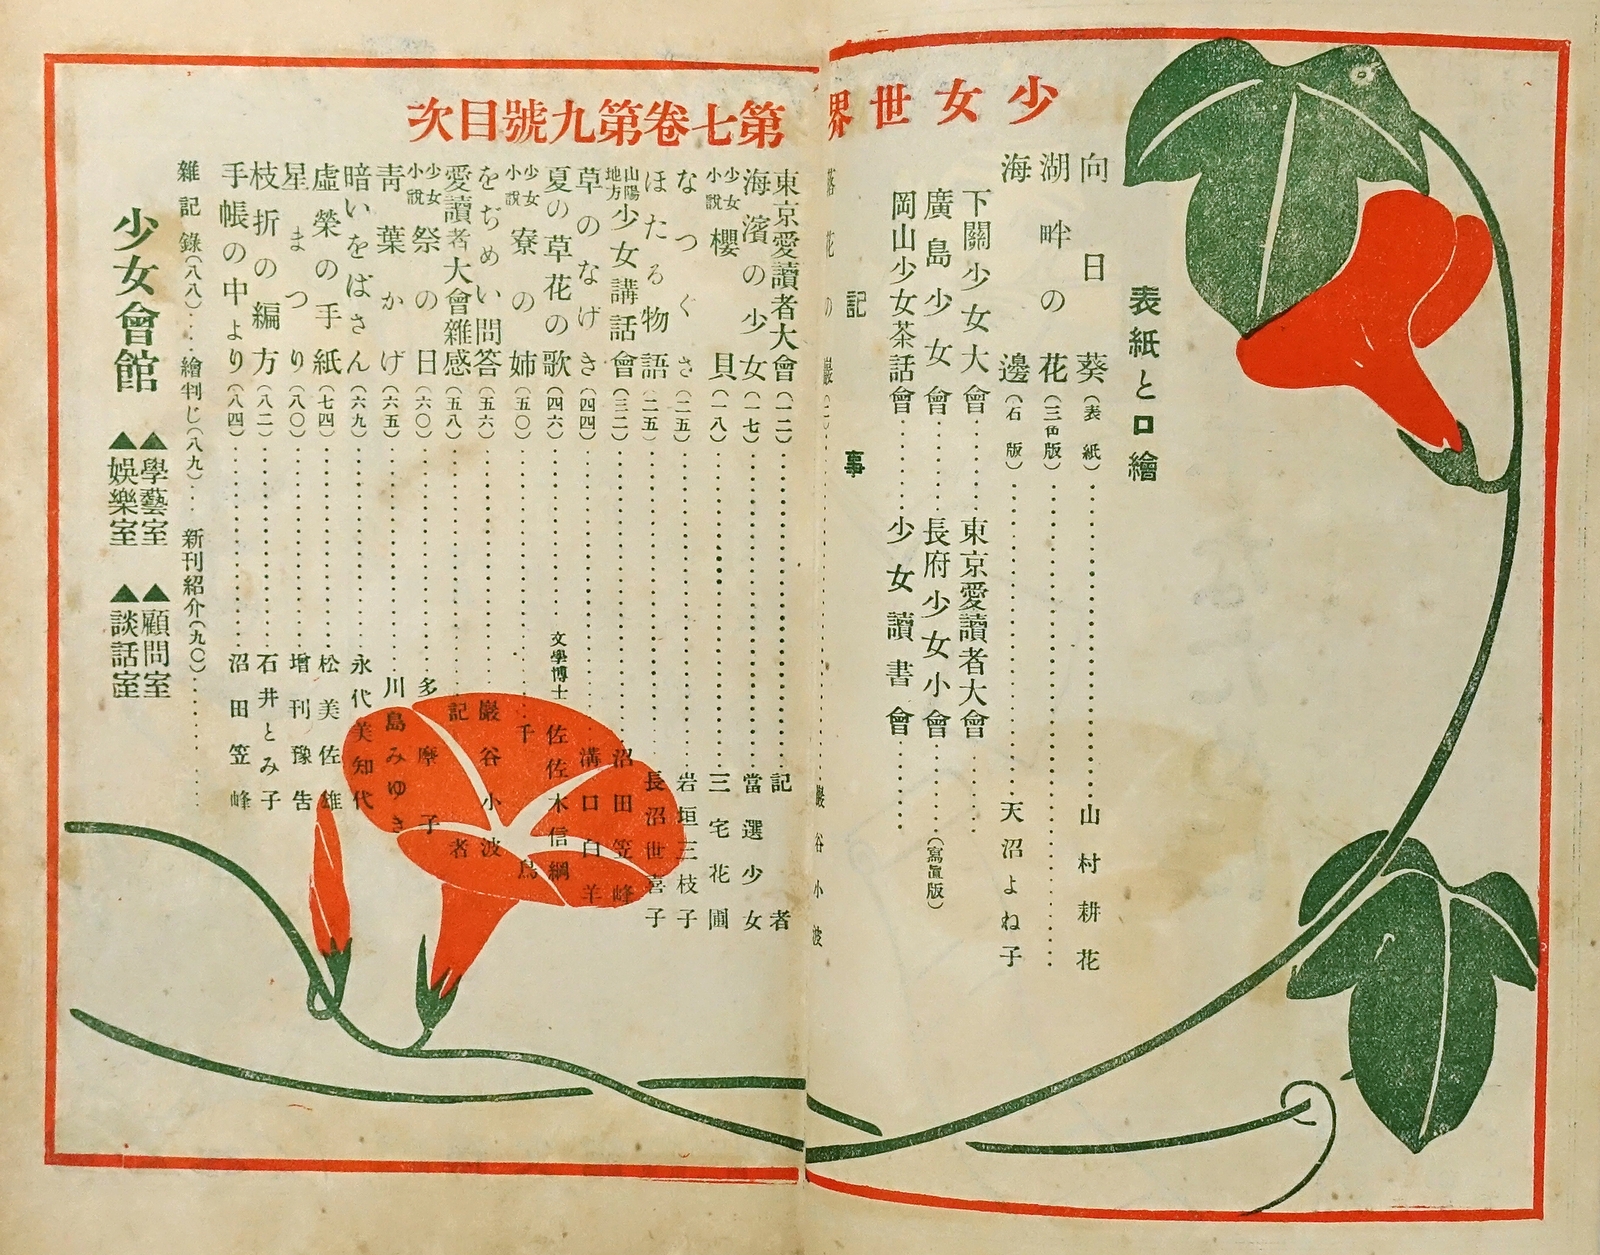 少女世界
第七卷第九號目次
表紙と口繪
向日葵(表紙)山村耕花
湖畔の花(三色版)
海邊(石版)天沼よね子
下關少女大會 東京愛讀者大會
廣島少女會 長府少女小會(寫眞版)
岡山少女茶話會 少女讀書會
記事
落花の巖(二)巖谷小波
東京愛讀者大會(一二)記者
海濱の少女(一七)當選少女
少女小說 櫻貝(一八)三宅花圃
なつくさ(二五)岩垣三枝子
ほたる物語(二五)長沼世喜子
山陽地方 少女講話會(三二)沼田笠峰
草のなげき(四四)溝口白羊
夏の草花の歌(四六)文學博士 佐佐木信綱
少女小說 寮の姉(五〇)千鳥
をぢめい問答(五六)巖谷小波
愛讀者大會雜感(五八)記者
少女小說 祭の日(六〇)多摩子
靑葉かげ(六五)川島みゆき
暗いをばさん(六九)永代美知代
虛榮の手紙(七四)松美佐雄
星まつり(八〇)增刊豫告
枝折の編方(八二)石井とみ子
手帳の中より(八四)沼田笠峰
雜記錄(八八)繪判じ(八九)新刊紹介(九〇)
少女會館
▲學藝室 ▲顧問室
▲娛樂室 ▲談話室